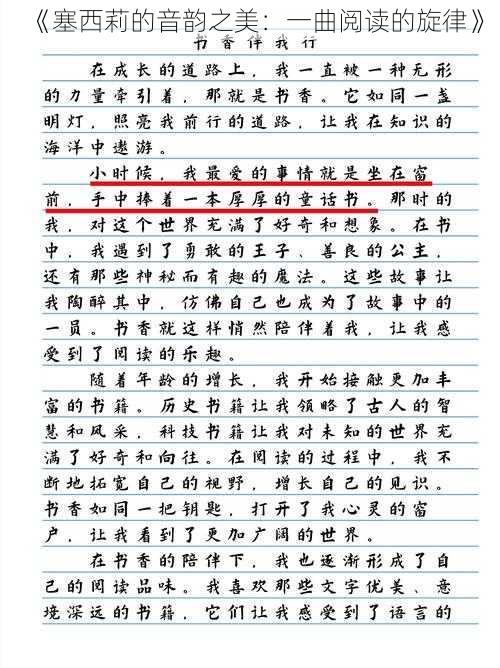 《塞西莉的音韵之美：一曲阅读的旋律》
书香伴我行
在成长的道路上，我一直被一种无形
的力量牵引着，那就是书香。它如同一盏
明灯，照亮我前行的道路，让我在知识的
海洋中遨游。
小时候，我最爱的事情就是坐在窗
前，手中捧着一本厚厚的童话书。那时的
我，对这个世界充满了好奇和想象。在书
中，我遇到了勇敢的王子、善良的公主，
还有那些神秘而有趣的魔法。这些故事让
我陶醉其中，仿佛自己也成为了故事中的
一员。书香就这样悄然陪伴着我，让我感
受到了阅读的乐趣。
随着年龄的增长，我开始接触更加丰
富的书籍。历史书籍让我领略了古人的智
慧和风采，科技书籍让我对未知的世界充
满了好奇和向往。在阅读的过程中，我不
断地拓宽自己的视野，增长自己的见识。
书香如同一把钥匙，打开了我心灵的窗
户，让我看到了更加广阔的世界。
在书香的陪伴下，我也逐渐形成了自
己的阅读品味。我喜欢那些文字优美、意
境深远的书籍，它们让我感受到了语言的